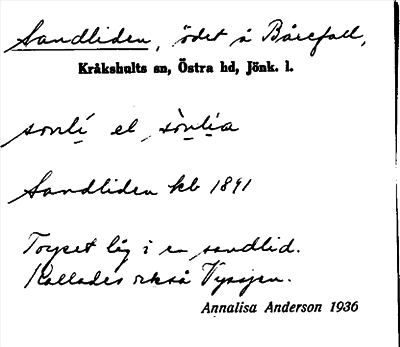 Sandliden, ödet å Bårefall,
Kråkshults sn, Östra hd, Jönk. l.
sonlí el sònlìa
Sandliden kb 1891
Torpet låg i en sandlid.
Kallades också
Annalisa Anderson 1936